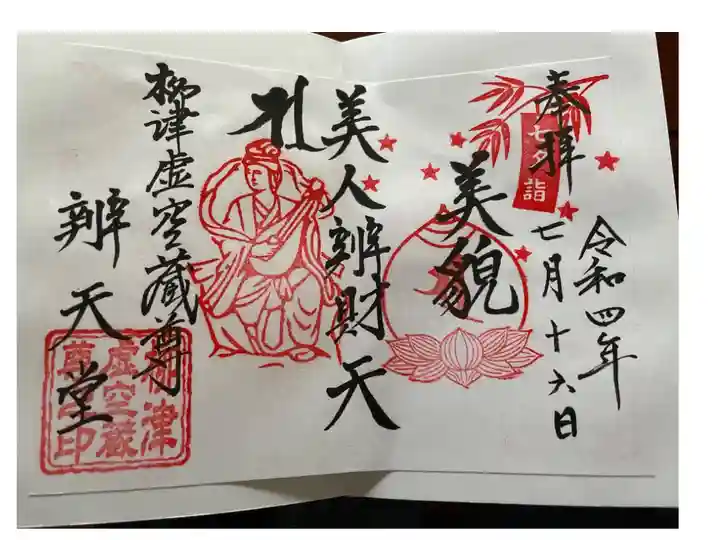 奉拝
七夕詣
令和四年
七月十六日
美貌
美人辨財天
柳津虚空蔵尊
辨天堂
柳津
虚空蔵
尊
印